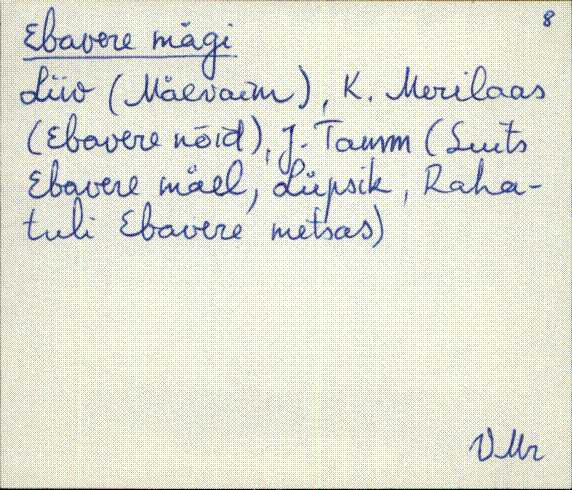 8
Ebavere mägi
Liiv (Mäevaim), K. Merilaas
(Ebavere nõid), J. Tamm (Suits
Ebavere mäel, Lüpsik, Raha-
tuli Ebavere metsas)
VMr